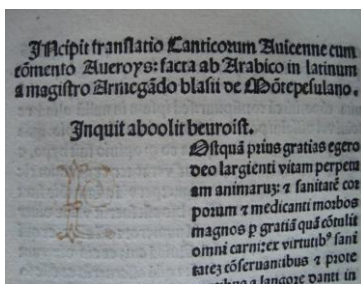 INcipit tranſlatio Canticorum Auicenne cum
cōmento Aueroys: facta ab Arabico in latinum
a magiſtro Armegādo blaſii de Mōtepeſulano.
Inquit aboolit beuroiſt.
OStquā prius gratias egero
deo largienti vitam perpetu
am animaruȝ: ⁊ ſanitatē cor
porum ⁊ medicanti morbos
magnos ꝑ gratiā quā cōtulit
omni carni: ex virtutibꝰ ſani
tateȝ cōſeruantibus ⁊ prote
a langore danti in